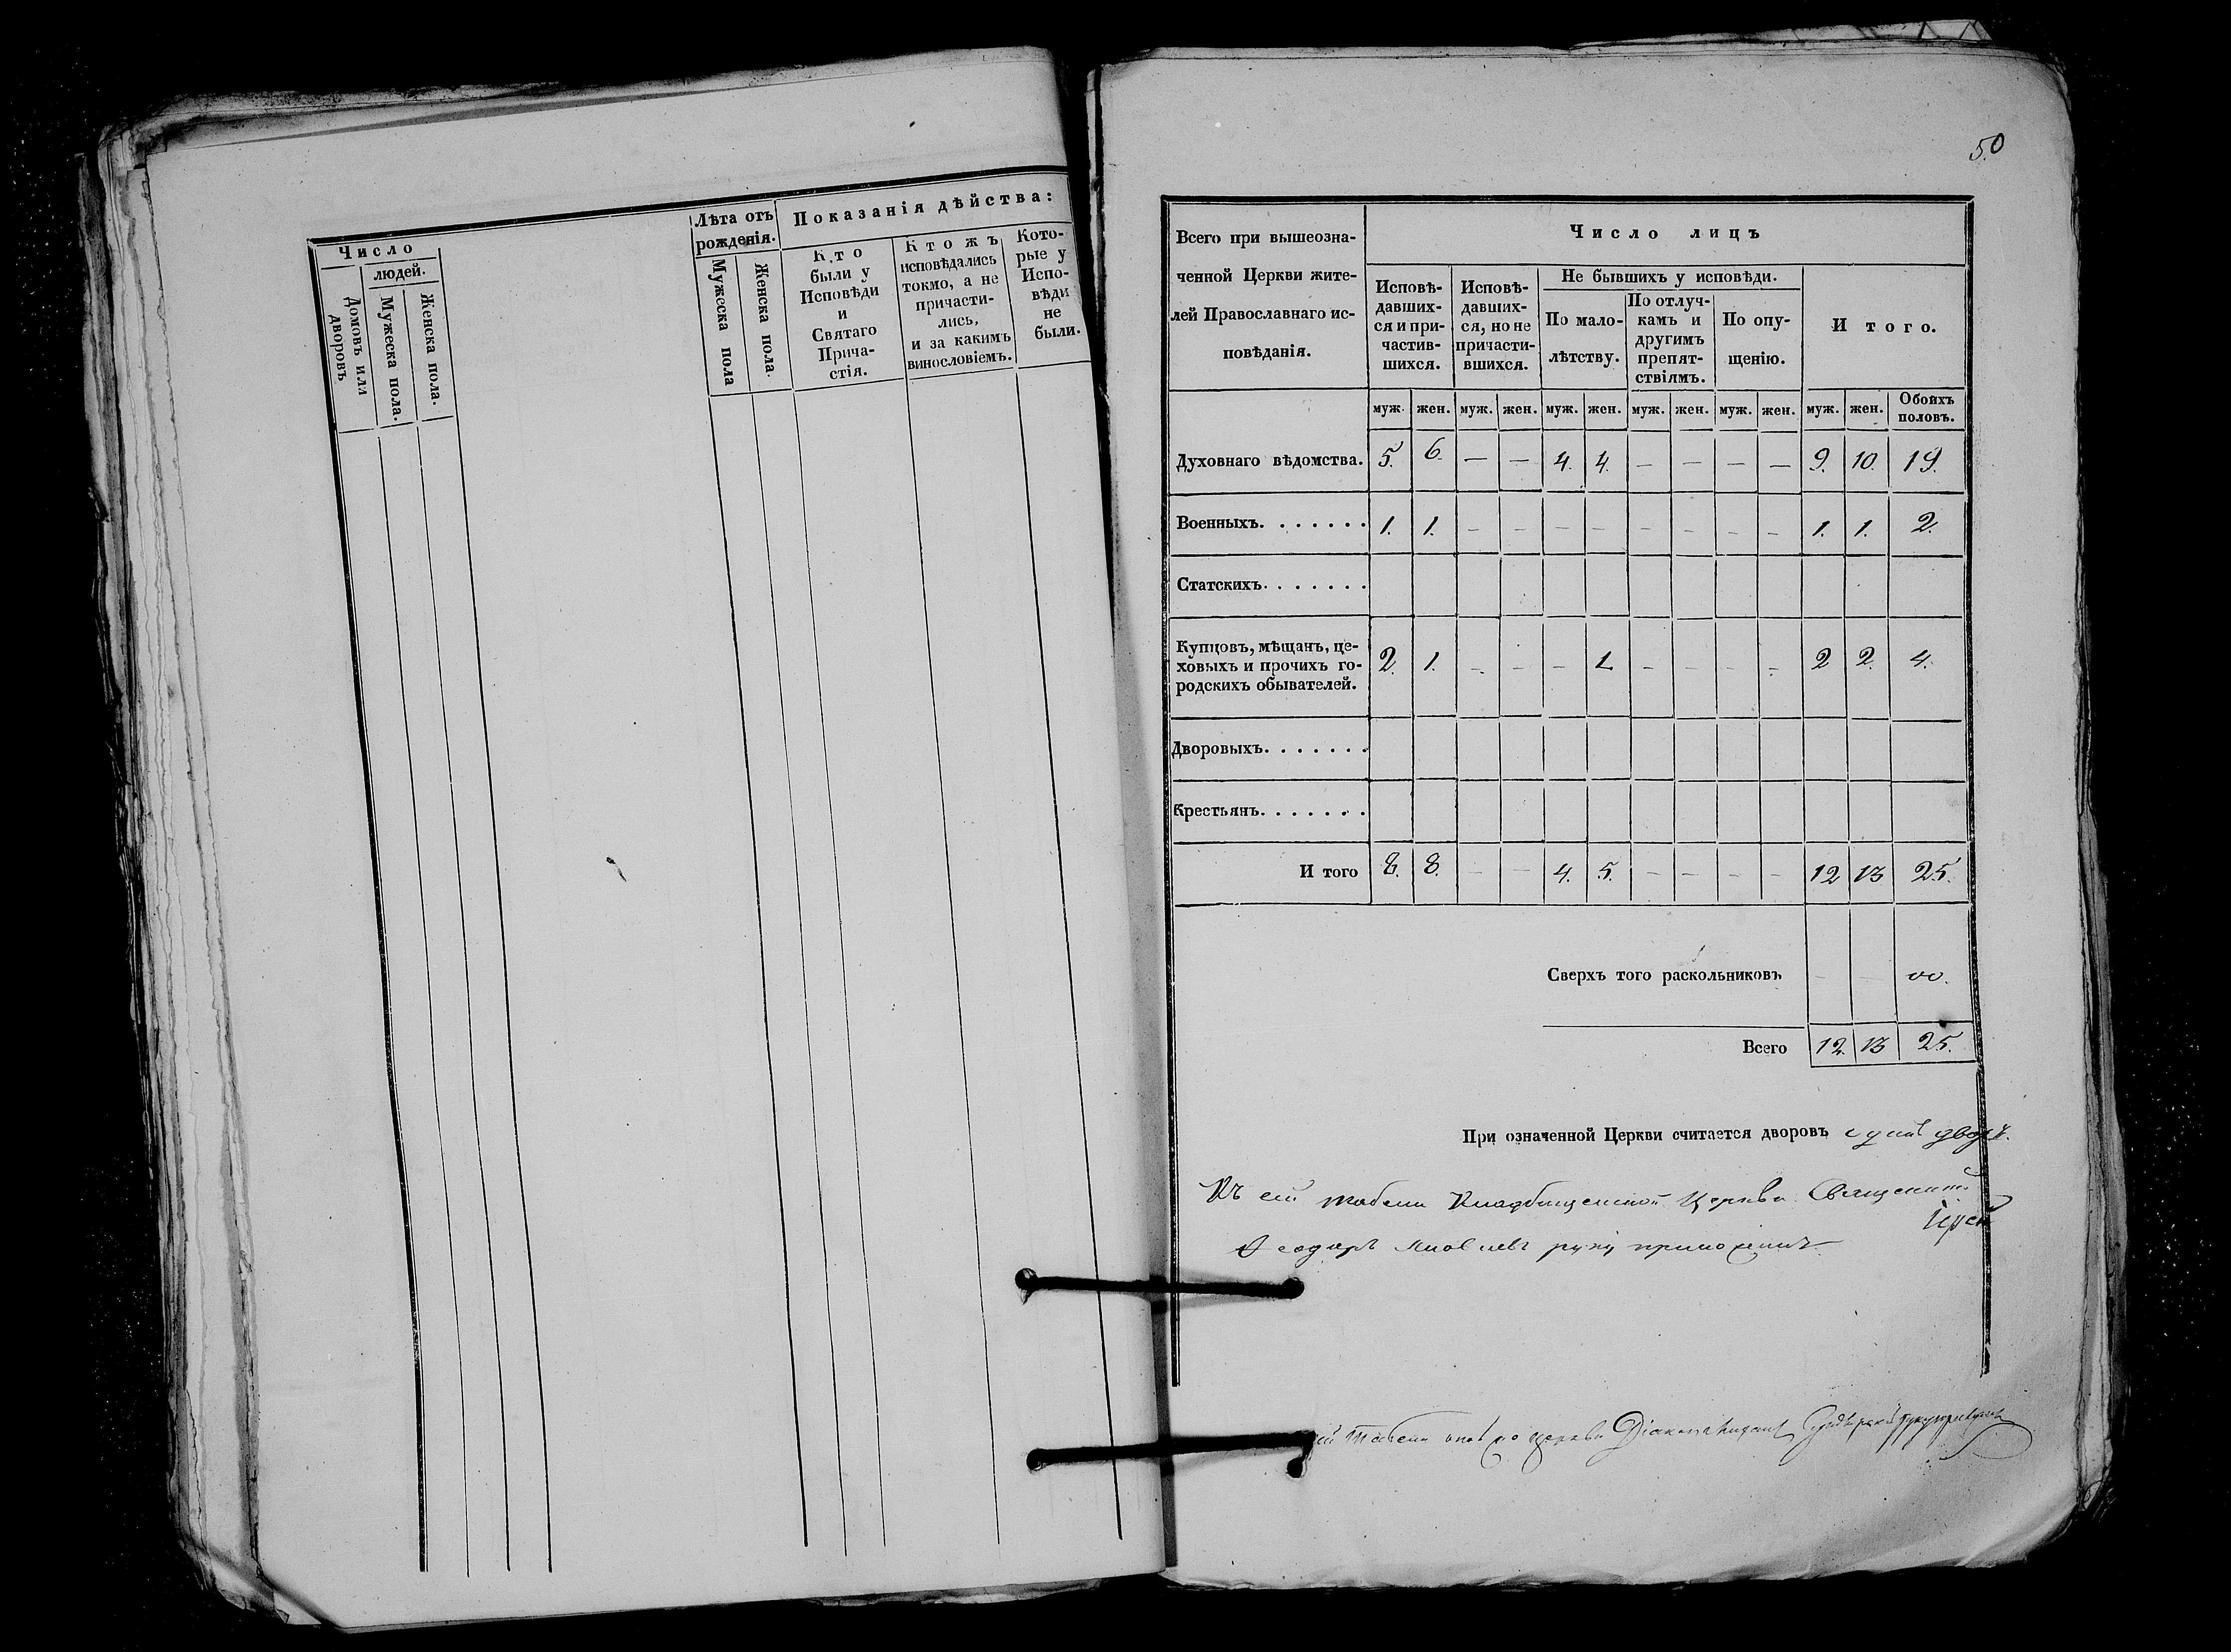 Число
людей.
Домовъ или дворовъ
Мужеска пола.
Женска пола.
Лѣта отъ рожденія.
Мужеска пола
Женска пола.
Показанія дѣйства:
Кто
были у
Исповѣди
и
Святаго
Прича-
стія.
Ктожъ
исповѣдались
токмо, а не
причасти-
лись,
и за какимъ
винословіемъ.
Кото-
рые у
Испо-
вѣди
не
были.
50
Всего при вышеозна-
ченной Церкви жите-
лей Православнаго ис-
повѣданія.
Число лицъ
Исповѣ-
давших-
ся и при-
частив-
шихся.
Исповѣ-
давших-
ся, но не
причасти-
вшихся.
Не бывшихъ у исповѣди.
По мало-
лѣтству.
По отлуч-
камъ и
другимъ
препят-
ствіямъ.
По опу-
щенію.
Итого.
муж. жен. муж. жен. муж. жен. муж. жен. муж. жен. муж. жен. Обоихъ половъ.
Духовнаго вѣдомства. 5. 6. — — 4. 4. — — — — 9. 10. 19.
Военныхъ. . . . . . . 1. 1. — — — — — — — — 1. 1. 2.
Статскихъ. . . . . . .
Купцовъ, мѣщанъ, це-
ховыхъ и прочихъ го-
родскихъ обывателей. 2. 1. — — — 1. — — — — 2 2. 4.
Дворовыхъ. . . . . . .
Крестьянъ. . . . . . .
И того 8. 8. — — 4. 5. — — — — 12 13 25.
Сверхъ того раскольниковъ — — 00.
Всего 12. 13 25.
При означенной Церкви считается дворовъ одинъ дворъ.
Къ сей табели Кладбищенской Церкви Священникъ
Іерей
Ѳеодоръ руку приложилъ
сей табели церкви Діаконъ